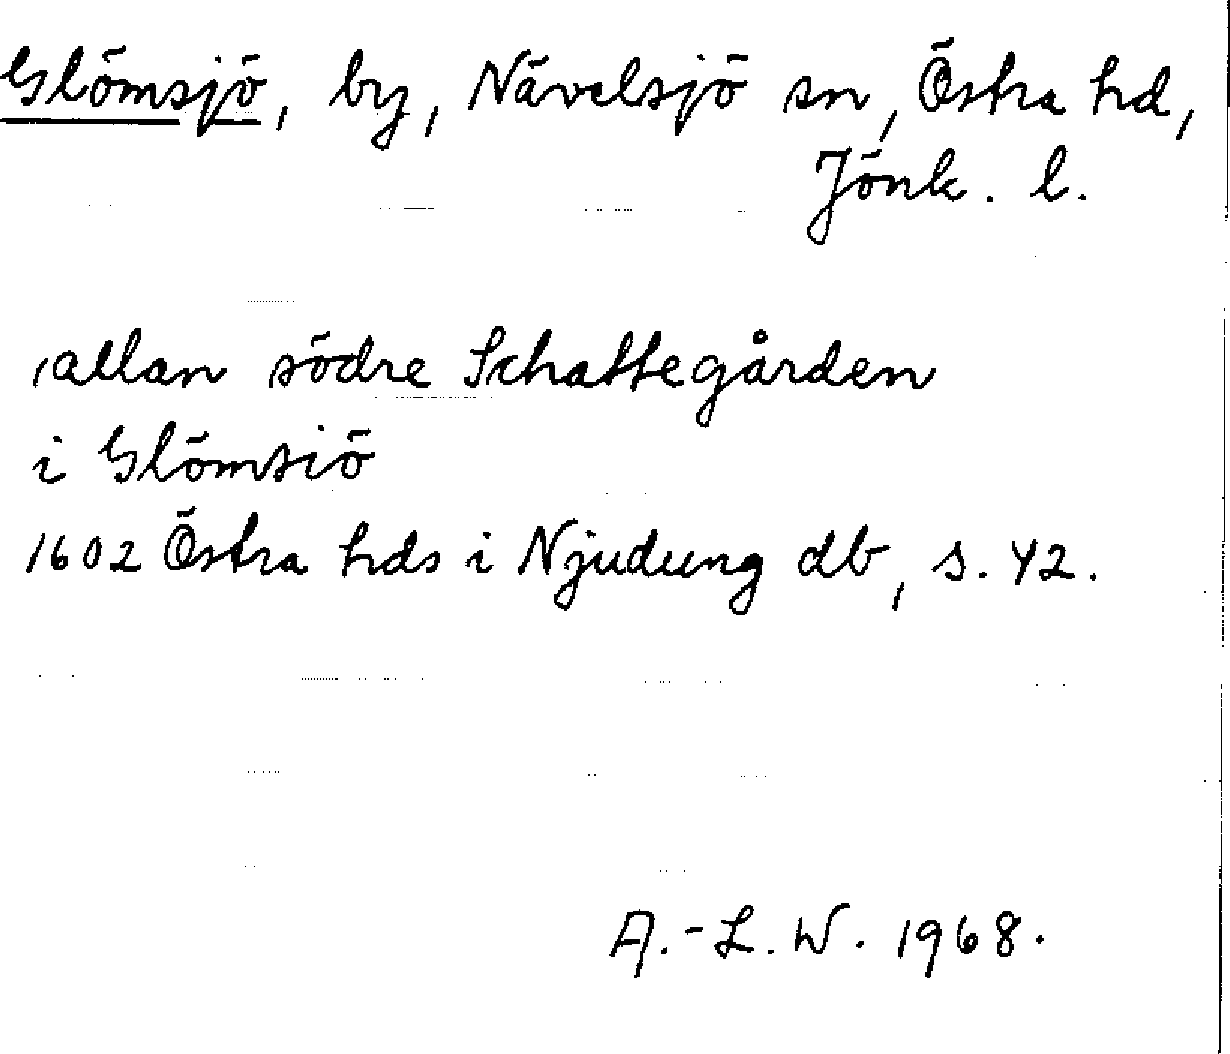 Glömsjö, by, Nävelsjö sn, Östra hd,
Jönk. l.
,allan södre Schattegården
i Glömsiö
1602 Östra hds i Njudung db, s. 42.
A.-L. W. 1968.